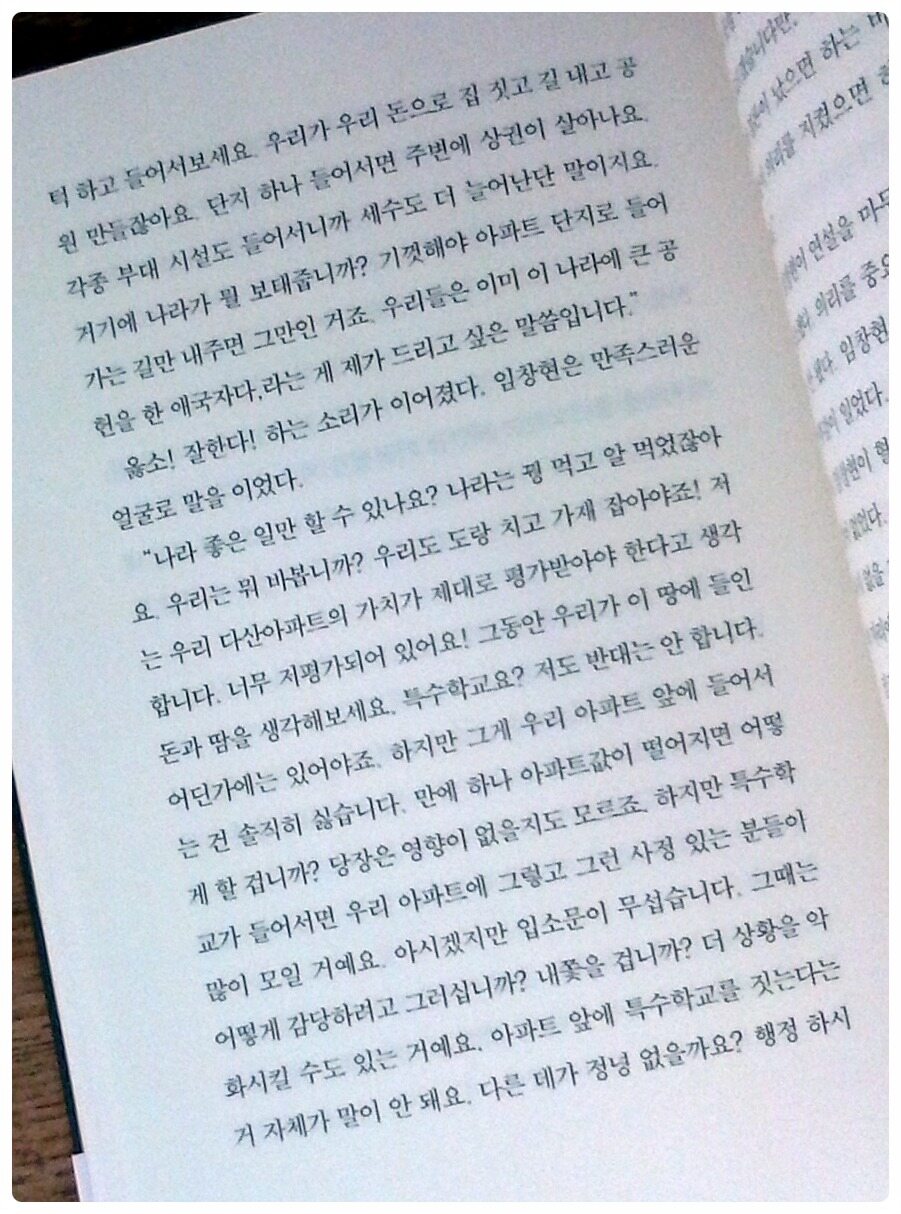 턱 하고 들어서보세요. 우리가 우리 돈으로 집 짓고 길 내고 공
원 만들잖아요. 단지 하나 들어서면 주변에 상권이 살아나요.
각종 부대 시설도 들어서니까 세수도 더 늘어난단 말이지요.
거기에 나라가 뭘 보태줍니까? 기껏해야 아파트 단지로 들어
가는 길만 내주면 그만인 거죠. 우리들은 이미 이 나라에 큰 공
헌을 한 애국자다,라는 게 제가 드리고 싶은 말씀입니다.”
옳소! 잘한다! 하는 소리가 이어졌다. 임창현은 만족스러운
얼굴로 말을 이었다.
“나라 좋은 일만 할 수 있나요? 나라는 꿩 먹고 알 먹었잖아
요. 우리는 뭐 바봅니까? 우리도 도랑 치고 가재 잡아야죠! 저
는 우리 다산아파트의 가치가 제대로 평가받아야 한다고 생각
합니다. 너무 저평가되어 있어요! 그동안 우리가 이 땅에 들인
돈과 땀을 생각해보세요. 특수학교요? 저도 반대는 안 합니다.
어딘가에는 있어야죠. 하지만 그게 우리 아파트 앞에 들어서
는 건 솔직히 싫습니다. 만에 하나 아파트값이 떨어지면 어떻
게 할 겁니까? 당장은 영향이 없을지도 모르죠. 하지만 특수학
교가 들어서면 우리 아파트에 그렇고 그런 사정 있는 분들이
많이 모일 거예요. 아시겠지만 입소문이 무섭습니다. 그때는
어떻게 감당하려고 그러십니까? 내쫓을 겁니까? 더 상황을 악
화시킬 수도 있는 거예요. 아파트 앞에 특수학교를 짓는다는
거 자체가 말이 안 돼요. 다른 데가 정녕 없을까요? 행정 하시
했습니다만,
났으면 하는
의리를 지켰으면
연설을 마무
의리를 중요
임창현
일었다.
없었다.